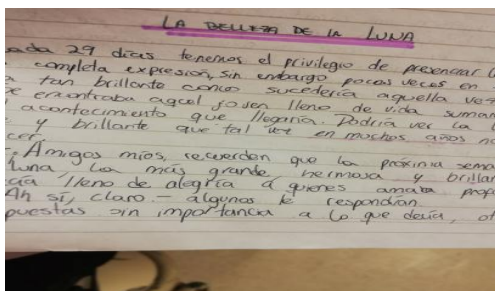 LA BELLEZA DE LA LUNA
ada 29 días tenemos el privilegio de presenciar
completa expresión, sin embargo pocas veces en
tan brillante como sucedería aquella
encontraba aquel joven lleno de vida
acontecimiento que llegaría. Podría ver la
y brillante que tal vez en muchos años
cer.
-. Amigos míos, recuerden que la próxima sema
luna, la más grande, hermosa y brillan
cía lleno de alegría a quienes amaba
Ah sí, claro.- algunos le respondían
puestas sin importancia a lo que decía,